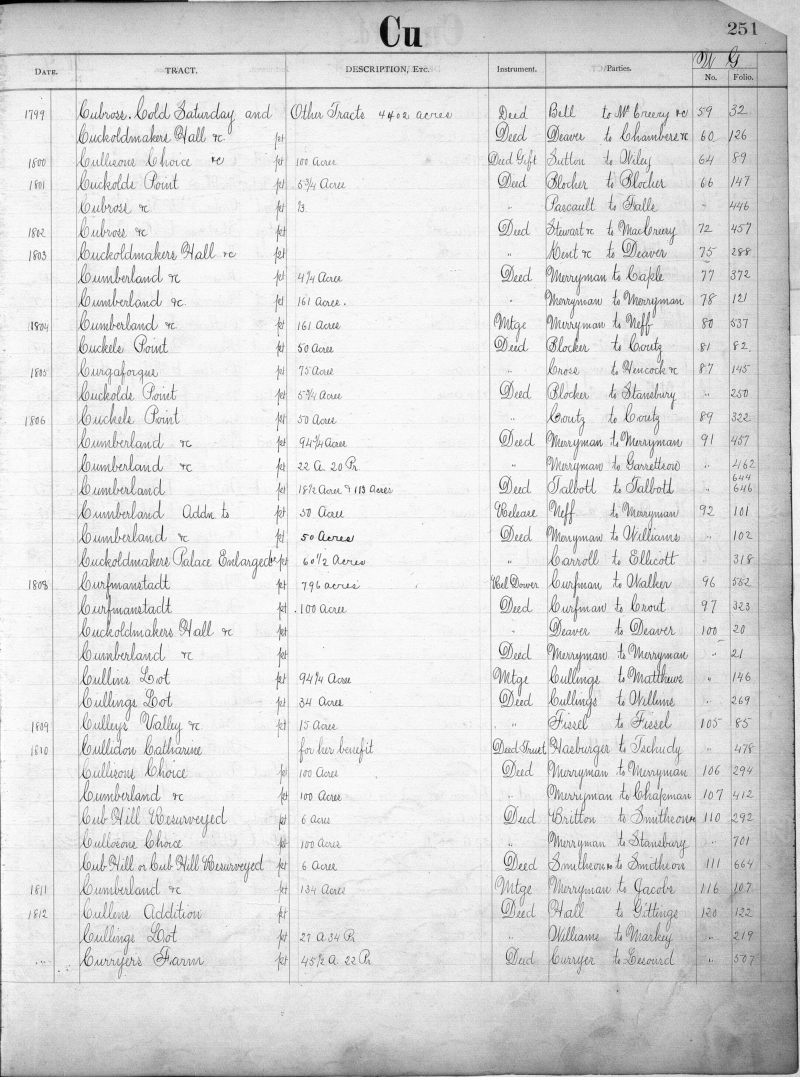 Cu
251
W G
DATE. TRACT. DESCRIPTION, ETC. Instrument. Parties. No. Folio.
1799 Cubross, Cold Saturday and Other Tracts 4402 acres Deed Bell to McCreery &c 59 32
Cuckoldmakers Hall &c pt Deed Deaver to Chambers &c 60 126
1800 Cullisons Choice &c pt 100 Acre Deed Gift Sutton to Wiley 64 89
1801 Cuckolds Point pt 5 3/4 Acre Deed Blocher to Blocher 66 147
Cubross &c pt 1/3 " Pascault to Falls " 446
1802 Cubross &c pt Deed Stewart &c to MacCreery 72 457
1803 Cuckoldmakers Hall &c pt " Kent &c to Deaver 75 288
Cumberland &c pt 4 1/4 Acre Deed Merryman to Caple 77 372
Cumberland &c. pt 161 Acre. " Merryman to Merryman 78 121
1804 Cumberland &c pt 161 Acre Mtge Merryman to Neff 80 537
Cuckele Point pt 50 Acre Deed Blocker to Coutz 81 82
1805 Curgaforgue pt 75 Acre " Cross to Hencock &c 87 145
Cuckolds Point pt 5 3/4 Acre Deed Blocker to Stansbury " 250
1806 Cuckele Point pt 50 Acre " Coutz to Coutz 89 322
Cumberland &c pt 94 3/4 Acre Deed Merryman to Merryman 91 457
Cumberland &c pt 22 A. 20 Pr. " Merryman to Garrettson " 462
Cumberland pt 18 1/2 Acre & 113 Acres Deed Talbott to Talbott " 644 646
Cumberland Addn. to pt 50 Acre Release Neff to Merryman 92 101
Cumberland &c pt 50 Acres Deed Merryman to Williams " 102
Cuckoldmakers Palace Enlarged &c pt 60 1/2 Acres " Carroll to Ellicott " 318
1808 Curfmanstadt pt 796 acres Rel Dower Curfman to Walker 96 552
Curfmanstadt pt 100 Acre Deed Curfman to Crout 97 323
Cuckoldmakers Hall &c pt " Deaver to Deaver 100 20
Cumberland &c pt Deed Merryman to Merryman " 21
Cullins Lot pt 94 1/4 Acre Mtge Cullings to Matthews " 146
Cullings Lot pt 34 Acre Deed Cullings to Willims " 269
1809 Culleys Valley &c pt 15 Acre " Fissel to Fissel 105 85
1810 Cullidon Catharine for her benefit Deed Trust Hasburger to Tschudy " 478
Cullisons Choice pt 100 Acre Deed Merryman to Merryman 106 294
Cumberland &c pt 100 Acre " Merryman to Chapman 107 412
Cub Hill Resurveyed pt 6 Acre Deed Britton to Smitheon 110 292
Cullosons Choice pt 100 Acre " Merryman to Stansbury " 701
Cub Hill or Cub Hill Resurveyed pt 6 Acre Deed Smitheon to Smitheon 111 664
1811 Cumberland &c pt 134 Acres Mtge Merryman to Jacobs 116 107
1812 Cullens Addition pt Deed Hall to Gittings 120 122
Cullings Lot pt 27 A 34 Pr " Williams to Markey " 219
Curryers Farm pt 45 1/2 A. 22 Pr Deed Curryer to Lesourd " 507